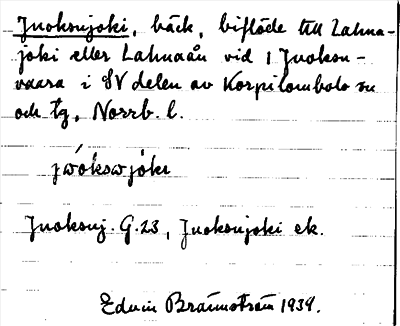 Juoksujoki, bäck, biflöde till Lahna-
joki eller Lahnaån vid Juoksu-
vaara i SV delen av Korpilombolo sn
och tg, Norrb. l.
jwókswjòki
Juoksuj. G. 23, Juoksujoki ek.
Edvin Brännström 1939.